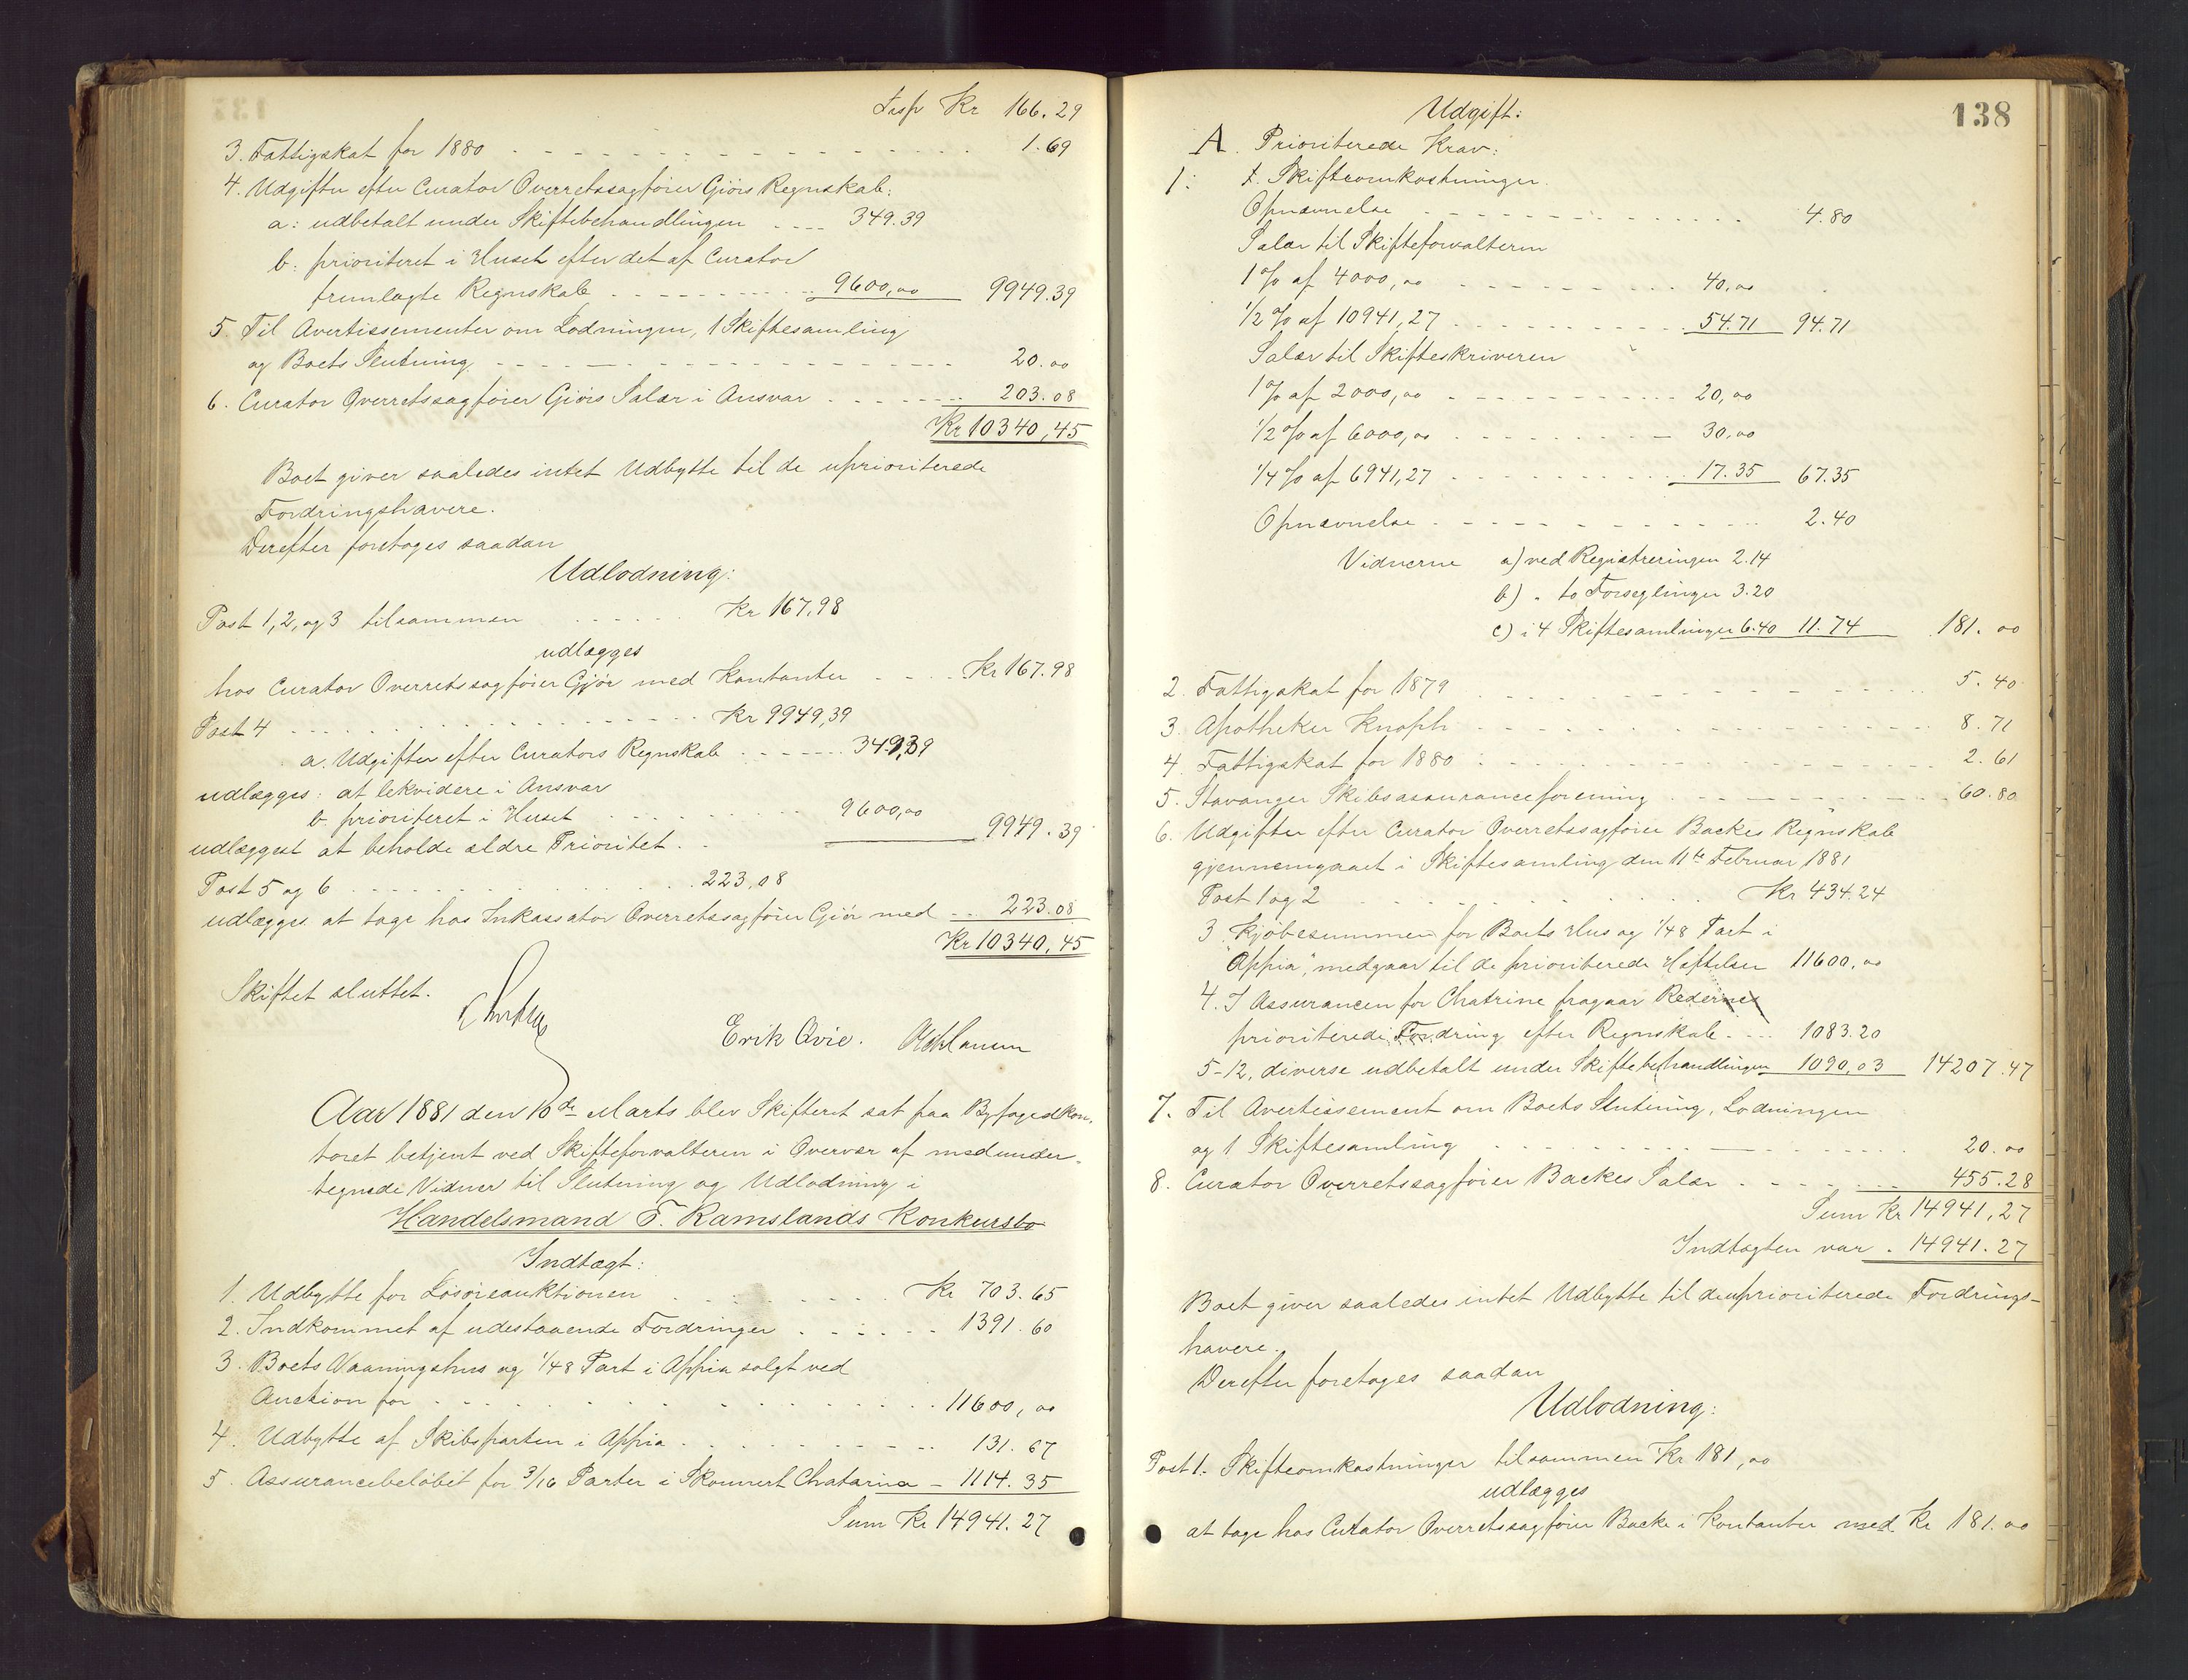 Trsp Kr 166.29
3. Fattigskat for 1880 1.69
4. Udgifter efter Curator Overretssagfører Giørs Regnskab:
a: udbetalt under Skiftebehandlingen 349.39
b: prioriteret i Huset efter det af Curator
fremlagte Regnskab 9600,00 9949.39
5. Til Avertissementer om Lodningen, 1 Skiftesamling
og Boets Slutning 20.00
6. Curator Overretssagfører Giørs Salær i Ansvar 203.08
Kr 10340,45
Boet giver saaledes intet Udbytte til de uprioriterede
Fordringshavere.
Derefter foretoges saadan
Udlodning:
Post 1, 2, og 3 tilsammen Kr 167,98
udlægges
hos Curator Overretssagfører Gjør med Kontanter Kr 167.98
Post 4 Kr 9949,39
a. Udgifter efter Curators Regnskab 349,39
udlægges: at lekvidere i Ansvar
b. prioriteret i Huset 9600,00
udlægges at beholde ældre Prioritet 9949.39
Post 5 og 6 223,08
udlægges at tage hos Inkassator Overretssagfører Giør med 223.08
Kr 10340,45
Skiftet sluttet.
Erik Qvie.
Aar 1881 den 10de Marts blev Skifteret sat paa Byfogedkon-
toret betjent ved Skifteforvalteren i Overvær af medunder-
tegnede Vidner til Slutning og Udlodning i
Handelsmand T. Ramslands Konkursbo
Indtægt:
1. Udbytte for Løsøreauktionen Kr 703.65
2. Indkommet af udestaaende Fordringer 1391.60
3. Boets Vaaningshus og 1/48 Part i Appia solgt ved
Auction for 11600,00
4. Udbytte af Skibsparten i Appia 131.67
5. Assurancebeløbet for 3/16 Parter i Skonnert Chatarina - 1114.35
Sum Kr 14941.27
138
Udgift:
A. Prioriterede Krav:
1: 1. Skifteomkostninger.
Opnævnelse 4.80
Salær til Skifteforvalteren
1 % af 4000,00 40,00
1/2 % af 10941,27 54.71 94.71
Salær til Skifteskriveren
1 % af 2000,00 20,00
1/2 % af 6000,00 30,00
1/4 % af 6941,27 17.35 67.35
Opnævnelse 2.40
Vidnerne a) ved Registreringen 2.14
b) " to Forseglinger 3.20
c) i 4 Skiftesamlinger 6.40 11.74 181.00
2. Fattigskat for 1879 5.40
3. Apotheker Knoph 8.71
4. Fattigskat for 1880 2.61
5. Stavanger Skibsassuranceforening 60.80
6. Udgifter efter Curator Overretssagfører Backes Regnskab
gjennemgaaet i Skiftesamling den 11te Februar 1881
Post 1 og 2 Kr 434.24
3 Kjøbesummen for Boets Hus og 1/48 Part i
"Appia", medgaar til de prioriterede Heftelser 11600,00
4. I Assurancen for Chatrine fragaar Redernes
prioriterede Fordring efter Regnskab 1083.20
5-12, diverse udbetalt under Skiftebehandlingen 1090,03 14207.47
7. Til Avertissement om Boets Slutning, Lodningen
og 1 Skiftesamling 20.00
8. Curator Overretssagfører Backes Salær 455.28
Sum Kr 14941,27
Indtægten var 14941.27
Boet giver saaledes intet Udbytte til de uprioriterede Fordrings-
havere.
Derefter foretoges saadan
Udlodning:
Post 1. Skifteomkostninger tilsammen Kr 181,00
udlægges
at tage hos Curator Overretssagfører Backe i Kontanter med Kr 181.00